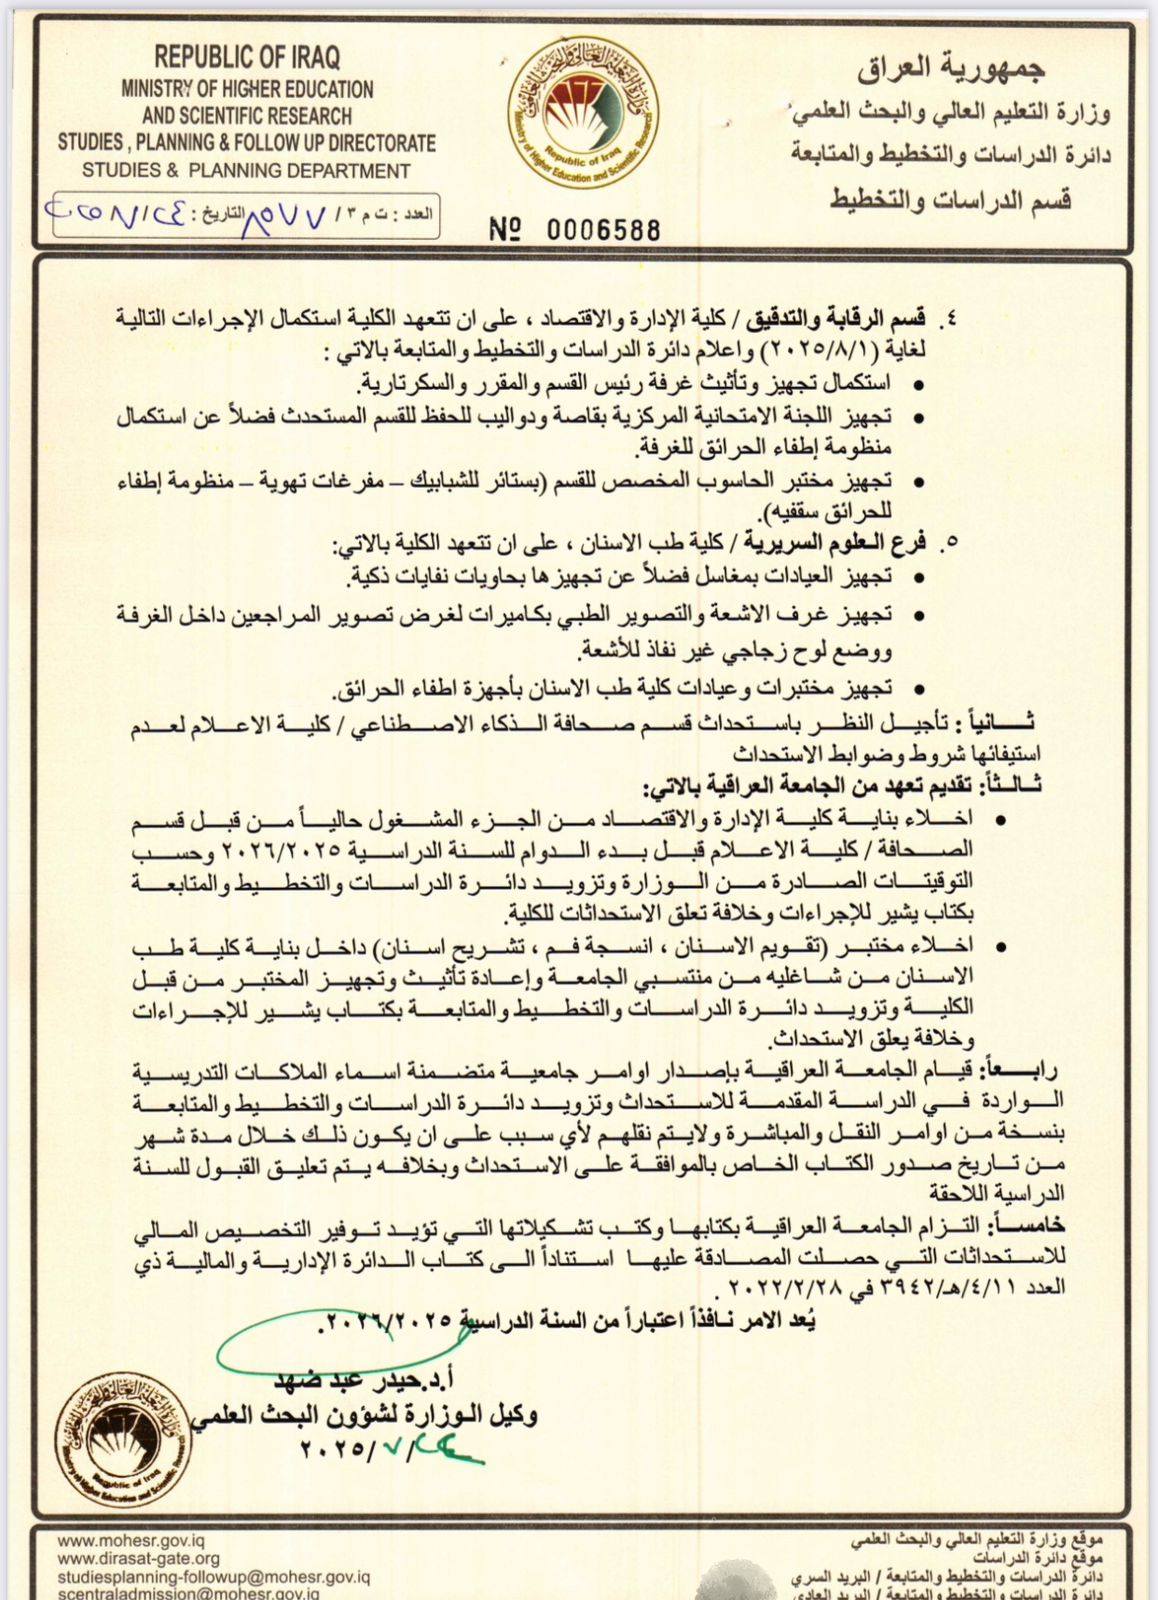 REPUBLIC OF IRAQ
MINISTRY OF HIGHER EDUCATION
AND SCIENTIFIC RESEARCH
STUDIES , PLANNING & FOLLOW UP DIRECTORATE
STUDIES & PLANNING DEPARTMENT
جمهورية العراق
وزارة التعليم العالي والبحث العلمي
دائرة الدراسات والتخطيط والمتابعة
قسم الدراسات والتخطيط
وزارة التعليم العالي والبحث العلمي
Republic of Iraq
Ministry of Higher Education and Scientific Research
العدد : ت م ٣/ ٨٥٧٧ التاريخ :
Nº 0006588
٤. قسم الرقابة والتدقيق / كلية الإدارة والاقتصاد ، على ان تتعهد الكلية استكمال الإجراءات التالية
لغاية (٢٠٢٥/٨/١) واعلام دائرة الدراسات والتخطيط والمتابعة بالاتي :
• استكمال تجهيز وتأثيث غرفة رئيس القسم والمقرر والسكرتارية.
• تجهيز اللجنة الامتحانية المركزية بقاصة ودواليب للحفظ للقسم المستحدث فضلاً عن استكمال
منظومة إطفاء الحرائق للغرفة.
• تجهيز مختبر الحاسوب المخصص للقسم (بستائر للشبابيك – مفرغات تهوية – منظومة إطفاء
للحرائق سقفيه).
٥. فرع العلوم السريرية / كلية طب الاسنان ، على ان تتعهد الكلية بالاتي:
• تجهيز العيادات بمغاسل فضلاً عن تجهيزها بحاويات نفايات ذكية.
• تجهيز غرف الاشعة والتصوير الطبي بكاميرات لغرض تصوير المراجعين داخل الغرفة
ووضع لوح زجاجي غير نفاذ للأشعة.
• تجهيز مختبرات وعيادات كلية طب الاسنان بأجهزة اطفاء الحرائق.
ثانياً : تأجيل النظر باستحداث قسم صحافة الذكاء الاصطناعي / كلية الاعلام لعدم
استيفائها شروط وضوابط الاستحداث
ثالثاً: تقديم تعهد من الجامعة العراقية بالاتي:
• اخلاء بناية كلية الإدارة والاقتصاد من الجزء المشغول حالياً من قبل قسم
الصحافة / كلية الاعلام قبل بدء الدوام للسنة الدراسية ٢٠٢٦/٢٠٢٥ وحسب
التوقيتات الصادرة من الوزارة وتزويد دائرة الدراسات والتخطيط والمتابعة
بكتاب يشير للإجراءات وخلافة تعلق الاستحداثات للكلية.
• اخلاء مختبر (تقويم الاسنان ، انسجة فم ، تشريح اسنان) داخل بناية كلية طب
الاسنان من شاغليه من منتسبي الجامعة وإعادة تأثيث وتجهيز المختبر من قبل
الكلية وتزويد دائرة الدراسات والتخطيط والمتابعة بكتاب يشير للإجراءات
وخلافة يعلق الاستحداث.
رابعاً: قيام الجامعة العراقية بإصدار اوامر جامعية متضمنة اسماء الملاكات التدريسية
الواردة في الدراسة المقدمة للاستحداث وتزويد دائرة الدراسات والتخطيط والمتابعة
بنسخة من اوامر النقل والمباشرة ولايتم نقلهم لأي سبب على ان يكون ذلك خلال مدة شهر
من تاريخ صدور الكتاب الخاص بالموافقة على الاستحداث وبخلافه يتم تعليق القبول للسنة
الدراسية اللاحقة
خامساً: التزام الجامعة العراقية بكتابها وكتب تشكيلاتها التي تؤيد توفير التخصيص المالي
للاستحداثات التي حصلت المصادقة عليها استناداً الى كتاب الدائرة الإدارية والمالية ذي
العدد ١١/٤/هـ/٣٩٤٢ في ٢٠٢٢/٢/٢٨ .
يُعد الامر نافذاً اعتباراً من السنة الدراسية ٢٠٢٦/٢٠٢٥.
أ.د.حيدر عبد ضهد
وكيل الوزارة لشؤون البحث العلمي
٢٠٢٥/٧/٢٤
Republic of Iraq
Ministry of Higher Education and Scientific Research
www.mohesr.gov.iq
www.dirasat-gate.org
studiesplanning-followup@mohesr.gov.iq
scentraladmission@mohesr.gov.iq
موقع وزارة التعليم العالي والبحث العلمي
موقع دائرة الدراسات
دائرة الدراسات والتخطيط والمتابعة / البريد السري
دائرة الدراسات والتخطيط والمتابعة / البريد العادي